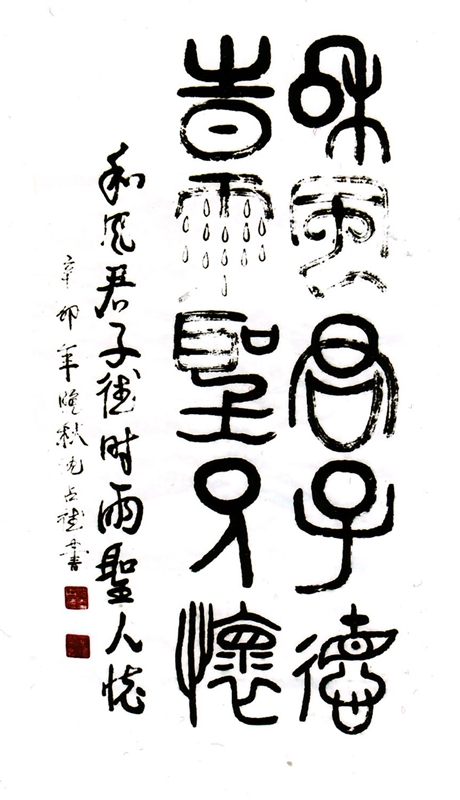 和風君子德
旹雨聖人懷
和风君子德时雨聖人怀
辛卯年晚秋書